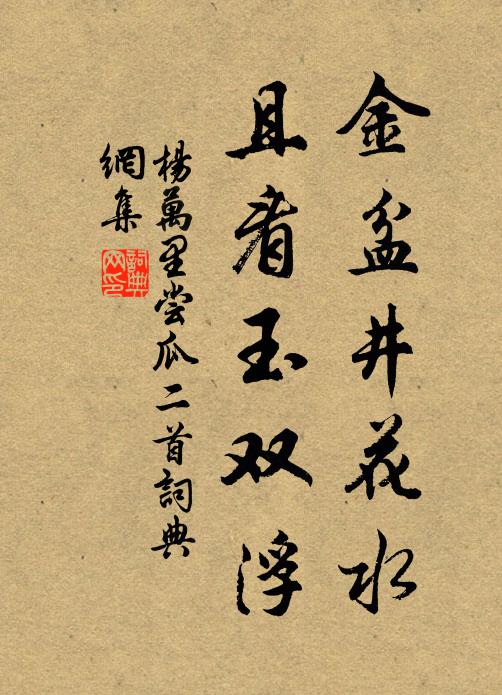 金盆井花水
且看玉双浮
楊萬里尝瓜二首詞典
網集
詞典
网印